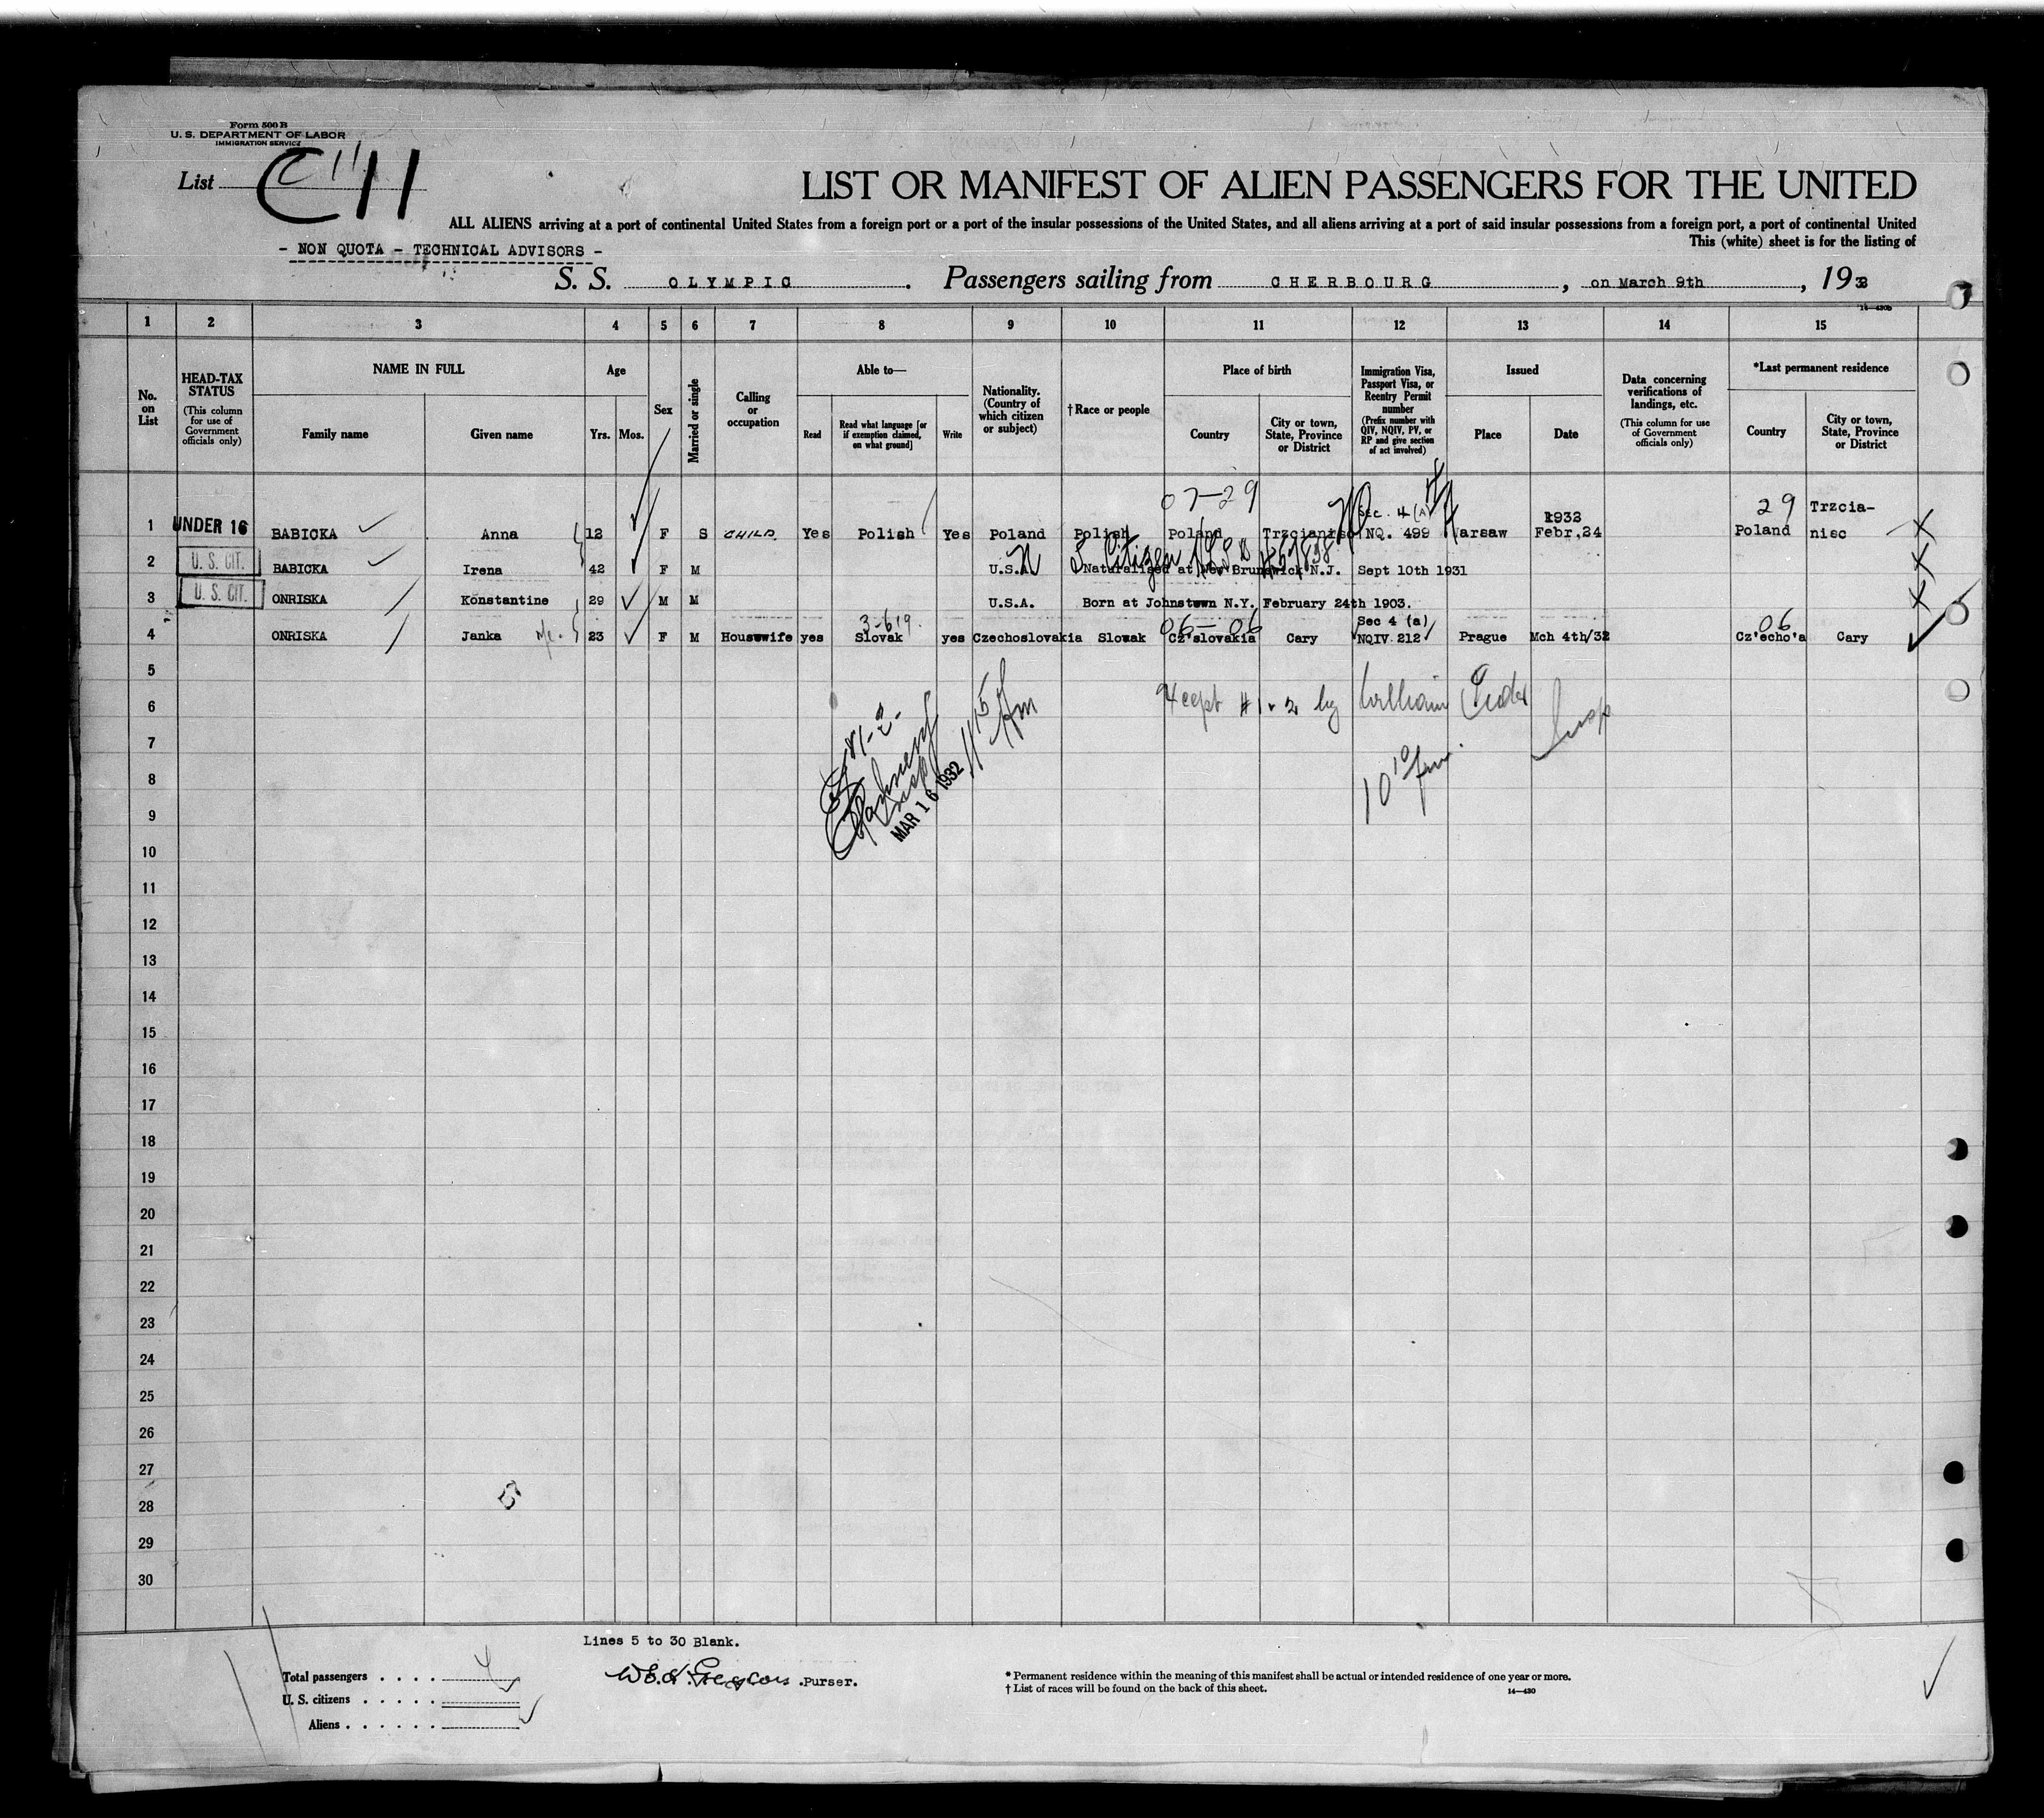 Form 500 B
U. S. DEPARTMENT OF LABOR
IMMIGRATION SERVICE
List C 11
LIST OR MANIFEST OF ALIEN PASSENGERS FOR THE UNITED
ALL ALIENS arriving at a port of continental United States from a foreign port or a port of the insular possessions of the United States, and all aliens arriving at a port of said insular possessions from a foreign port, a port of continental United
This (white) sheet is for the listing of
- NON QUOTA - TECHNICAL ADVISORS -
S. S. OLYMPIC. Passengers sailing from CHERBOURG, on March 9th, 193
14—430b
1 2 3 4 5 6 7 8 9 10 11 12 13 14 15
No. on List
HEAD-TAX STATUS
(This column for use of Government officials only)
NAME IN FULL
Family name Given name
Age
Yrs. Mos.
Sex
Married or single
Calling or occupation
Able to—
Read Read what language [or if exemption claimed, on what ground] Write
Nationality. (Country of which citizen or subject)
†Race or people
Place of birth
Country City or town, State, Province or District
Immigration Visa, Passport Visa, or Reentry Permit number
(Prefix number with QIV, NQIV, PV, or RP and give section of act involved)
Issued
Place Date
Data concerning verifications of landings, etc.
(This column for use of Government officials only)
*Last permanent residence
Country City or town, State, Province or District
07-29 Sec. 4 (A) 1932 29 Trzcia-
1 UNDER 16 BABICKA Anna 12 F S CHILD Yes Polish Yes Poland Polish Poland NQ. 499 Warsaw Febr,24 Poland nisc
2 U. S. CIT. BABICKA Irena 42 F M U.S.A. Naturalised at New Brunswick N.J. Sept 10th 1931
U S Citizen
3 U. S. CIT. ONRISKA Konstantine 29 M M U.S.A. Born at Johnstown N.Y. February 24th 1903.
3-619. 06-06 Sec 4 (a) 06
4 ONRISKA Janka 23 F M Housewife yes Slovak yes Czechoslovakia Slovak Cz'slovakia Cary NQIV 212 Prague Mch 4th/32 Cz'echo'a Cary
5
6
7
8
9
10
11
12
13
14
15
16
17
18
19
20
21
22
23
24
25
26
27
28
29
30
#1-2-
Insp
MAR 16 1932
#1 & 2 by William
Insp
10 10
Lines 5 to 30 Blank.
Total passengers . . . . 4
U. S. citizens . . . . .
Aliens . . . . . .
.Purser.
* Permanent residence within the meaning of this manifest shall be actual or intended residence of one year or more.
† List of races will be found on the back of this sheet.
14—430